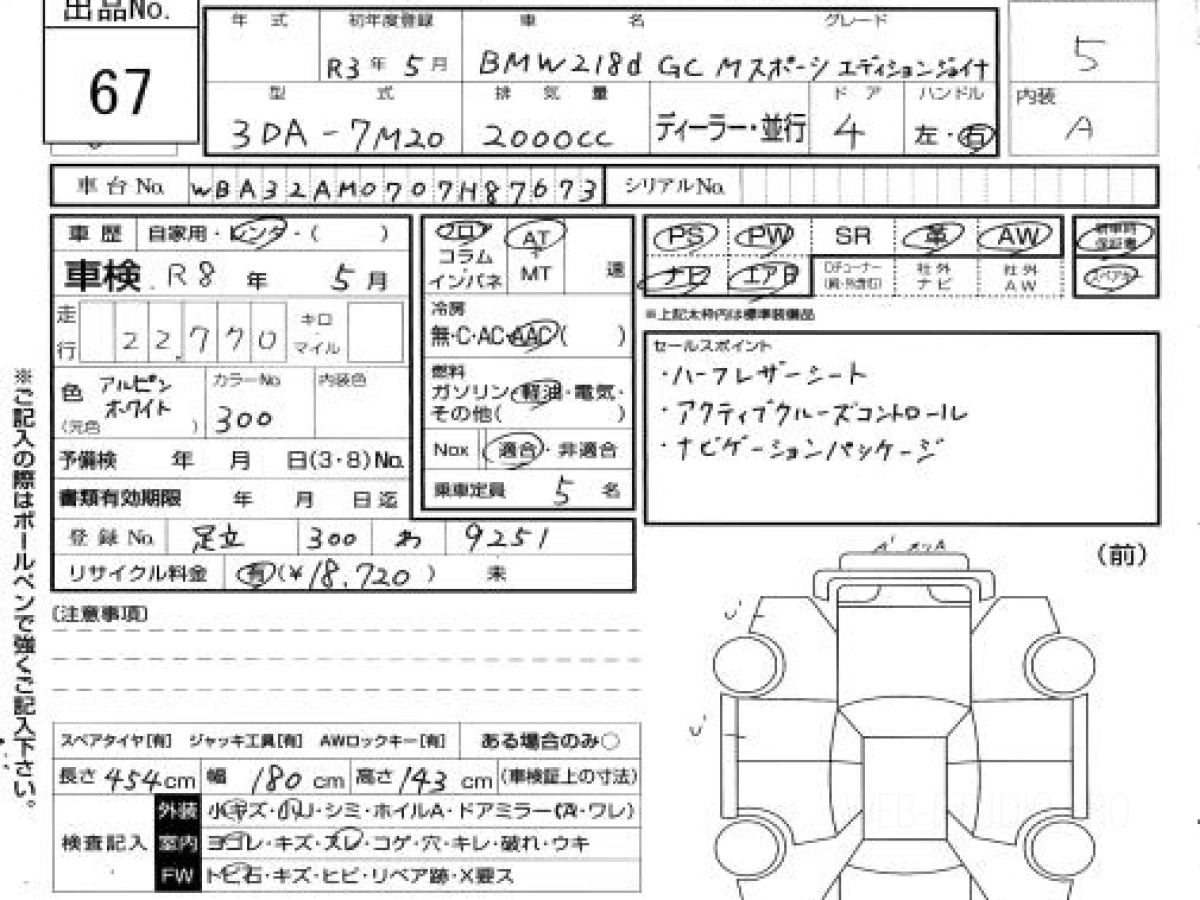 出品No.
67
年 式 初年度登録 車 名 グレード
R3年 5月 BMW218d GC Mスポーツ エディションジョイ+
型 式 排 気 量 ドア ハンドル
3DA-7M20 2000cc ディーラー・並行 4 左・右
5
内装
A
車台No. WBA32AM0707H87673 シリアルNo.
車歴 自家用・レンタ・( )
車検 R8年 5月
走行 22,770 キロ・マイル
色 アルピンホワイト (元色 ) カラーNo. 300 内装色
予備検 年 月 日(3・8)No.
書類有効期限 年 月 日迄
登録No. 足立 300 わ 9251
リサイクル料金 有(¥18,720) 未
フロア
コラム
インパネ
AT
MT 速
冷房
無・C・AC・AAC( )
燃料
ガソリン・軽油・電気・
その他( )
Nox 適合・非適合
乗車定員 5名
PS PW SR 革 AW 新車時保証書
ナビ エアB 社外ナビ 社外AW スペアキー
※上記太枠内は標準装備品
セールスポイント
・ハーフレザーシート
・アクティブクルーズコントロール
・ナビゲーションパッケージ
※ご記入の際はボールペンで強くご記入下さい。
(注意事項)
(前)
スペアタイヤ[有] ジャッキ工具[有] AWロックキー[有] ある場合のみ○
長さ 454cm 幅 180cm 高さ 143cm (車検証上の寸法)
検査記入
外装 小キズ・小U・シミ・ホイルA・ドアミラー(A・ワレ)
室内 ヨゴレ・キズ・スレ・コゲ・穴・キレ・破れ・ウキ
FW トビ石・キズ・ヒビ・リペア跡・X要ス